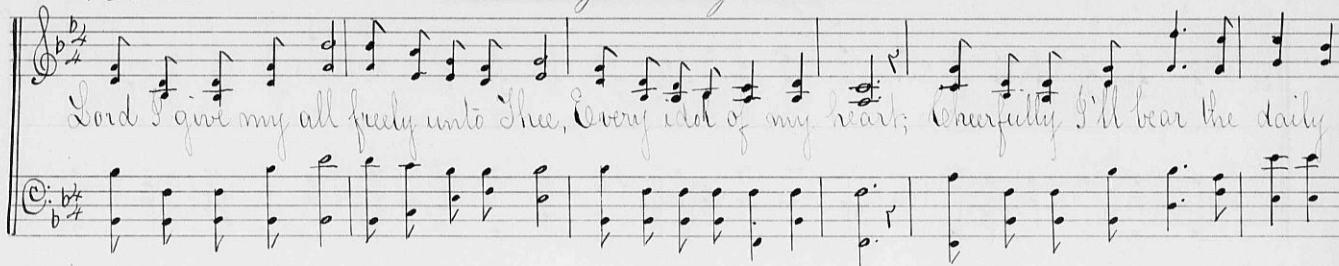 Lord I give my all freely unto Thee, Every idol of my heart; Cheerfully I'll bear the daily